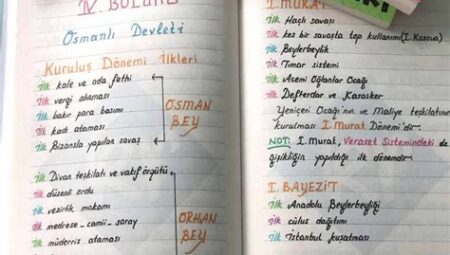 IV. BÖLÜM
Osmanlı Devleti
Kuruluş Dönemi İlkleri
ilk kale ve ada fethi
ilk vergi alınması
ilk bakır para basımı
ilk kadı ataması
ilk Bizansla yapılan savaş
OSMAN
BEY
ilk Divan teşkilatı ve vakıf örgütü
ilk düzenli ordu
ilk vezirlik makamı
ilk medrese - camii - saray
ilk müderris ataması
ORHAN
BEY
I. MURAT
ilk Haçlı savaşı
ilk kez bir savaşta top kullanımı (I. Kosova)
ilk Beylerbeylik
ilk Tımar sistemi
ilk Acemi Oğlanlar Ocağı
ilk Defterdar ve Kazasker
Yeniçeri Ocağı'nın ve Maliye teşkilatının
kurulması I Murat Dönemi'dir.
NOT: I Murat, Veraset Sistemindeki
değişikliğin yapıldığı ilk dönemdir.
I. BAYEZİT
ilk Anadolu Beylerbeyliği
ilk cülus dağıtımı
ilk İstanbul kuşatması